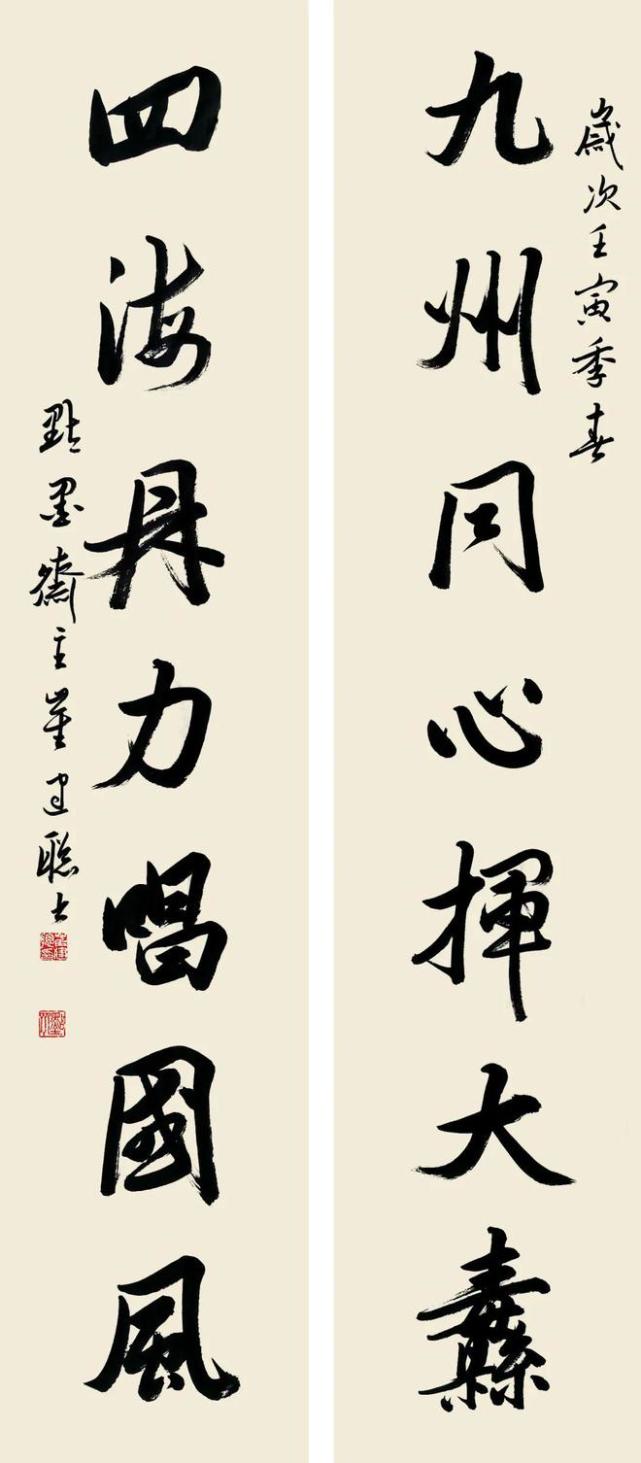 歲次壬寅季春
九州同心揮大纛
四海丹力唱國風
點墨齋主崔建聰书